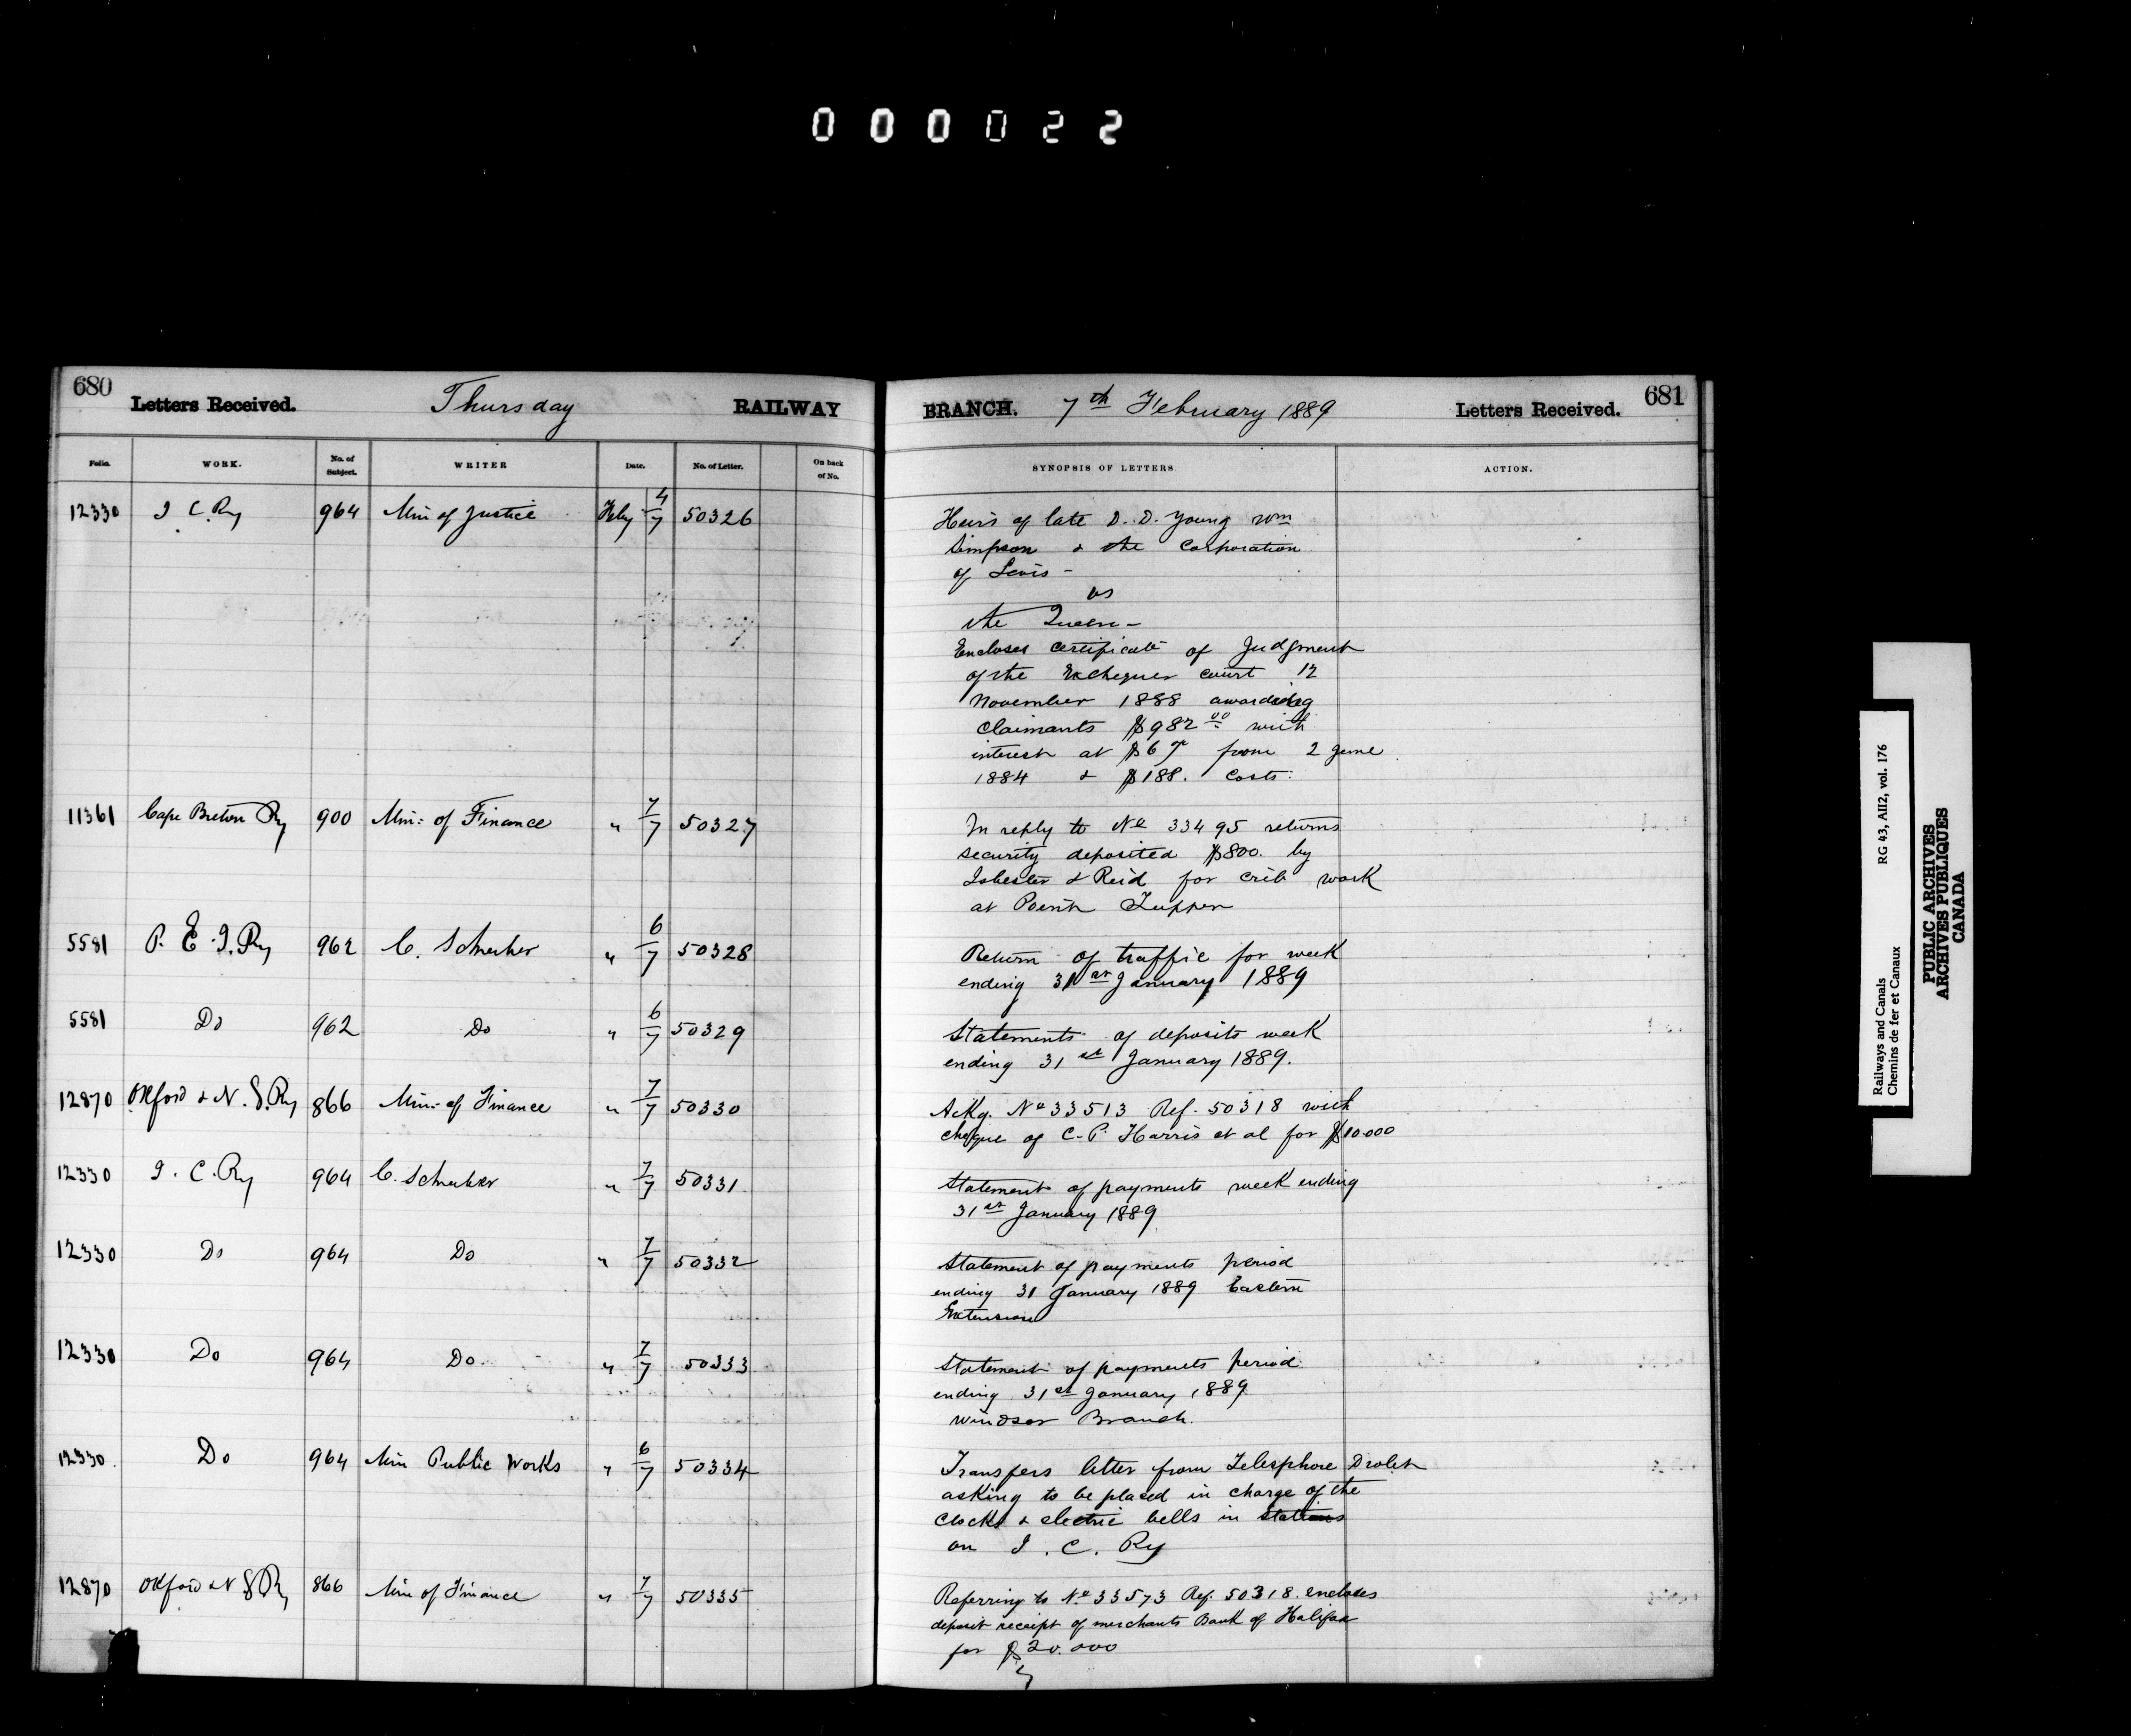 000022
680
Letters Received. Thursday RAILWAY
Folio. WORK. No. of Subject. WRITER Date. No. of Letter. On back of No.
12330 I C. Ry 964 Min of Justice Feby 4/7 50326
11361 Cape Breton Ry 900 Min: of Finance " 7/7 50327
5581 P. E. I. Ry 962 C. Schreiber " 6/7 50328
5581 Do 962 Do " 6/7 50329
12870 Oxford & N. S. Ry 866 Min: of Finance " 7/7 50330
12330 I. C. Ry 964 C. Schreiber " 7/7 50331
12330 Do 964 Do " 7/7 50332
12330 Do 964 Do " 7/7 50333
12330 Do 964 Min Public Works " 6/7 50334
12870 Oxford & N S Ry 866 Min of Finance " 7/7 50335
BRANCH. 7th February 1889 Letters Received. 681
SYNOPSIS OF LETTERS ACTION.
Heirs of late D. D. Young Wm
Simpson & the Corporation
of Levis -
vs
the Queen -
Encloses certificate of Judgment
of the Exchequer Court 12
November 1888 awarding
claimants $982 00 with
interest at $6 from 2 June
1884 & $188. Costs.
In reply to No 33495 returns
security deposited $800. by
Isbester & Reid for crib work
at Point Tupper
Return of traffic for week
ending 31st January 1889
Statements of deposits week
ending 31st January 1889.
Ackg. No 33513 Ref. 50318 with
cheque of C. P. Harris et al for $10.000
Statement of payments week ending
31st January 1889
Statement of payments period
ending 31 January 1889 Eastern
Extension
Statement of payments period
ending 31st January 1889
Windsor Branch.
Transfers letter from Telesphore Drolet
asking to be placed in charge of the
clocks & electric bells in stations
on I. C. Ry
Referring to No 33573 Ref. 50318. encloses
deposit receipt of Merchants Bank of Halifax
for $20.000
Railways and Canals RG 43, AII2, vol. 176
Chemins de fer et Canaux
PUBLIC ARCHIVES
ARCHIVES PUBLIQUES
CANADA